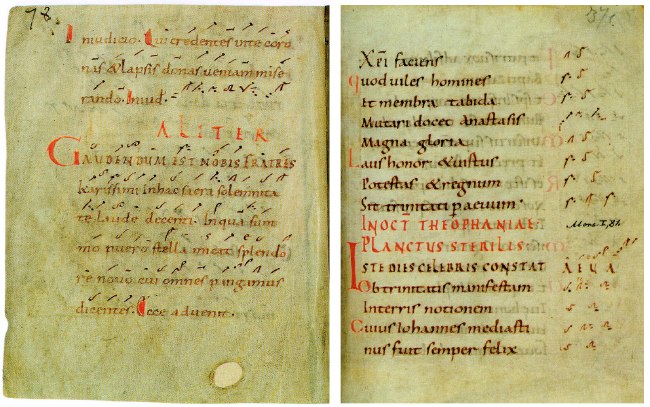 78
In iudicio. Qui credentes unte coro
nas & lapsis donas ueniam mise
rando. Inud.
ALITER
GAUDENDUM EST NOBIS FRATRES
karissimi Inhac sacra solemnita
te. Laude decenti. Inqua sum
mo puero stella micat splendo
re nouo cui omnes pangamus
dicentes. Ecce aduenit.
37
Xpi faciens
Quod uiles homines
Et membra tabida
Mutari docet anastasis
Magna gloria
Laus honor & uirtus
Potestas & regnum
Sit trinitati p aeuum
IN OCT THEOPHANIAE
PLANCTUS STERILIS
ISTE DIES CELEBRIS CONSTAT AEUA
Ob trinitatis manifestam
Interris notionem
Cuius Iohannes mediasti
nus fuit semper felix